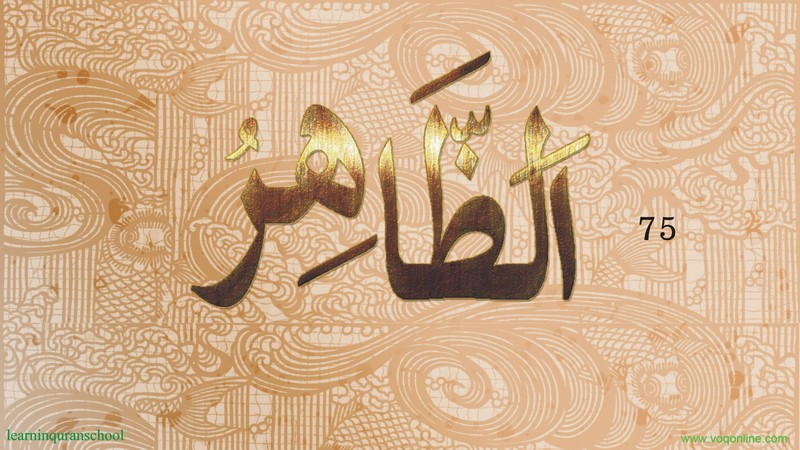 اَلظَّاهِرُ
75
learninquranschool
www.voqonline.com